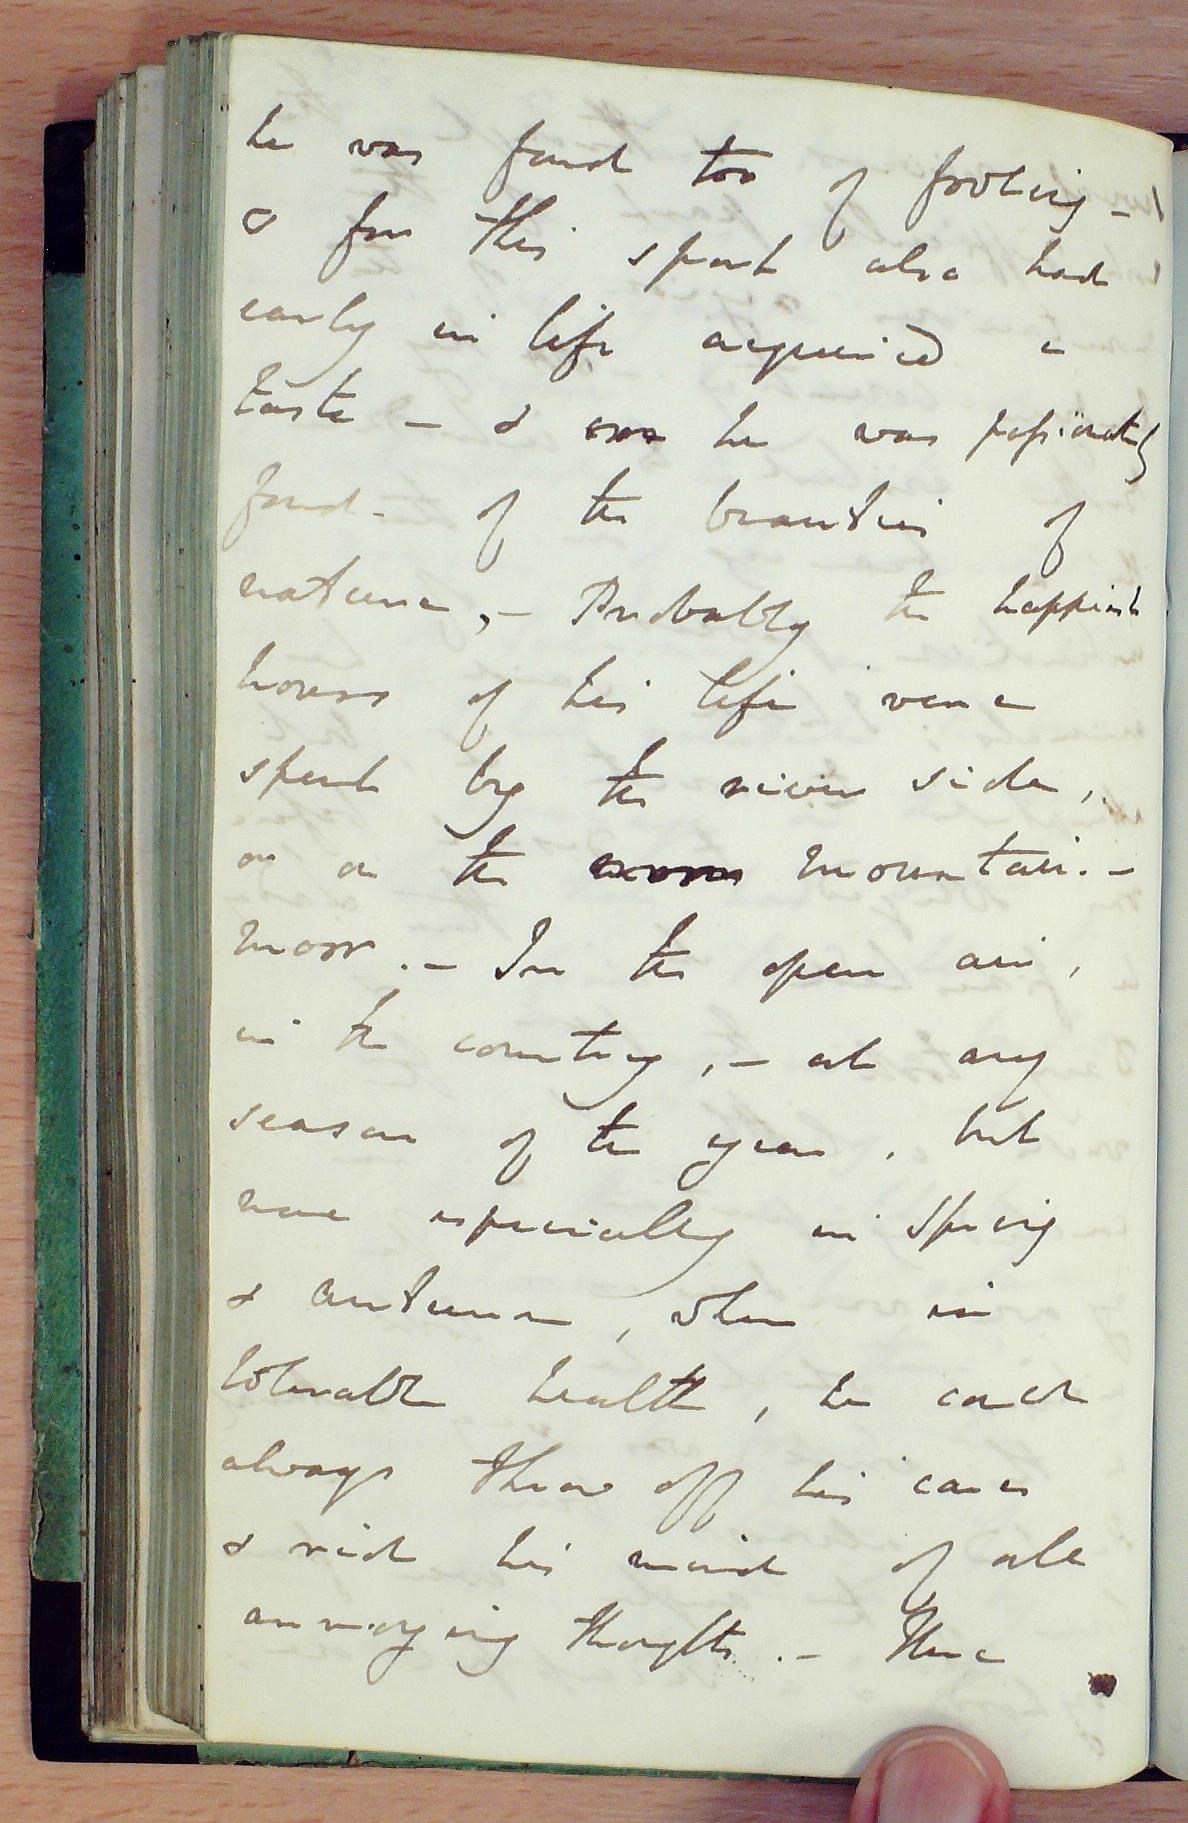 he was fond too of fishing -
& for this sport also had
early in life acquired a
taste - & he was passionately
fond - of the beauties of
nature, - Probably the happiest
hours of his life were
spent by the river side,
or on the mountain -
moor. - In the open air,
in the country, - at any
season of the year, but
more especially in Spring
& autumn, when in
tolerable health, he could
always throw off his cares
& rid his mind of all
annoying thoughts. - There